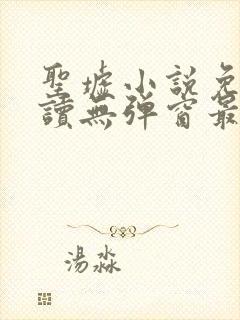 聖墟小說免
讀無彈窗最
湯淼